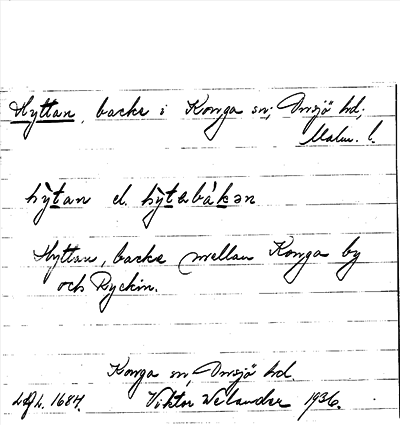 Hyttan, backe i Konga sn; Onsjö hd;
Malm. l.
hy̱tan el. hy̱tabåkən
Hyttan, backe mellan Konga by
och Ryckin.
Konga sn, Onsjö hd.
1684. Viktor Welander 1936.